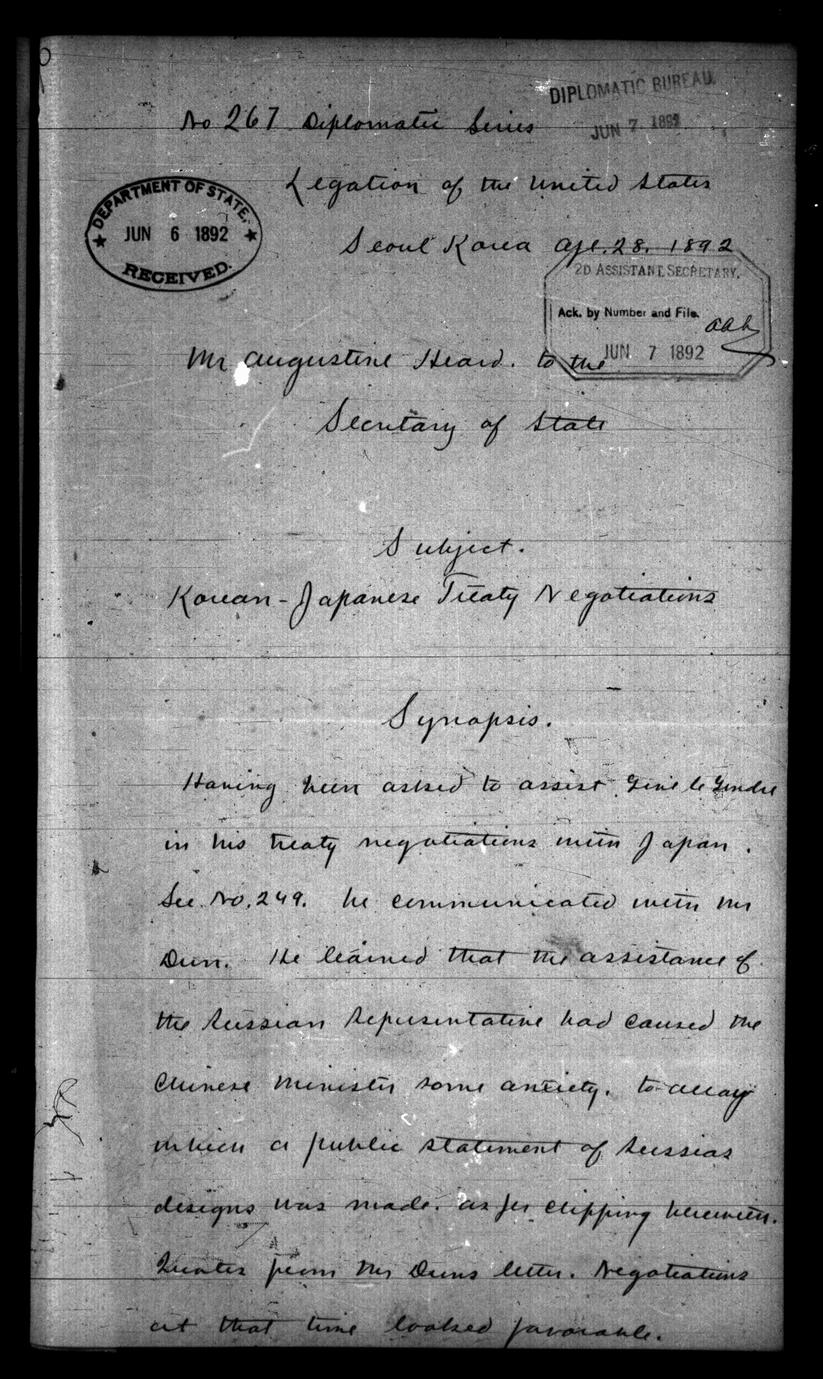 DIPLOMATIC BUREAU.
JUN 7 1892
No 267 Diplomatic Series
Legation of the United States
DEPARTMENT OF STATE,
JUN 6 1892
RECEIVED.
Seoul Korea Apl. 28. 1892
2D ASSISTANT SECRETARY.
Ack. by Number and File.
JUN 7 1892
Mr Augustine Heard. to the
Secretary of State
Subject.
Korean-Japanese Treaty Negotiations
Synopsis.
Having been asked to assist Genl le Gendre
in his treaty negotiations with Japan.
See No. 249. he communicated with Mr
Dun. He learned that the assistance of
the Russian Representative had caused the
Chinese Minister some anxiety. to allay
which a public statement of Russias
designs was made. as per clipping herewith.
Quotes from Mr Duns letter. Negotiations
at that time looked favorable.